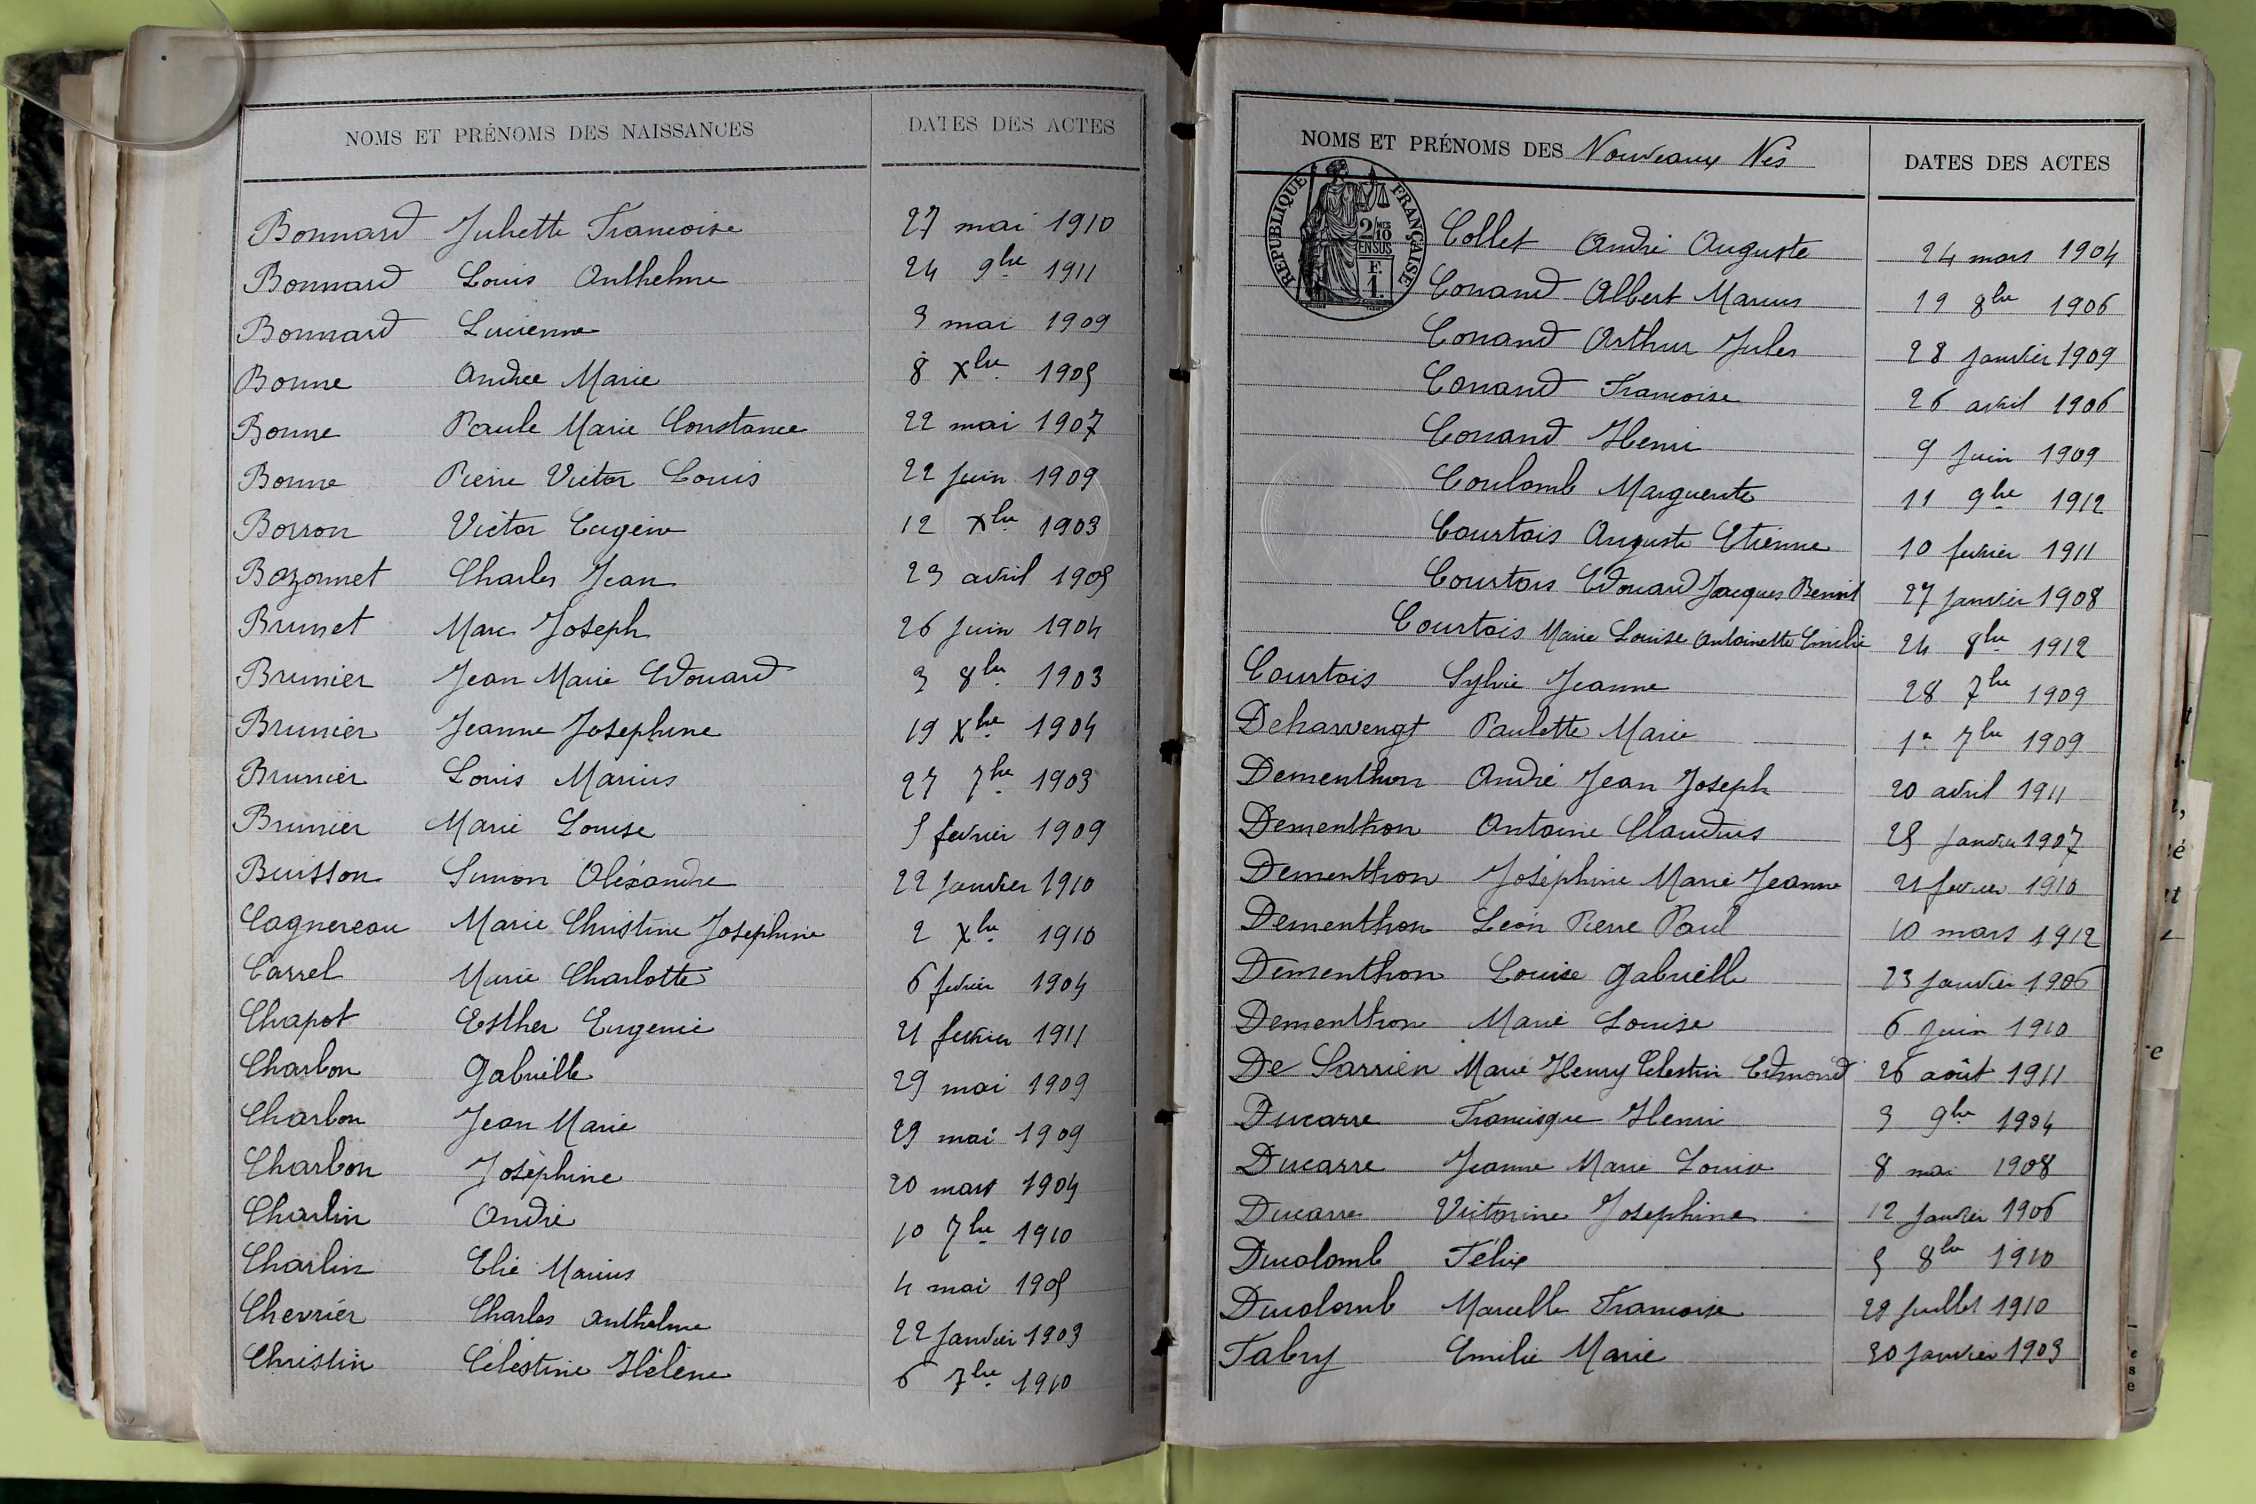 NOMS ET PRÉNOMS DES NAISSANCES DATES DES ACTES
Bonnard Juliette Francoise 27 mai 1910
Bonnard Louis Anthelme 24 9bre 1911
Bonnard Lucienne 3 mai 1909
Bonne Andrée Marie 8 Xbre 1905
Bonne Paule Marie Constance 22 mai 1907
Bonne Pierre Victor Louis 22 juin 1909
Borron Victor Eugène 12 Xbre 1903
Bozonnet Charles Jean 23 avril 1905
Brunet Marc Joseph 26 juin 1904
Brunier Jean Marie Edouard 3 8bre 1903
Brunier Jeanne Josephine 19 Xbre 1904
Brunier Louis Marius 27 7bre 1903
Brunier Marie Louise 5 fevrier 1909
Buisson Simon Aléxandre 22 janvier 1910
Cagnereau Marie Christine Joséphine 2 Xbre 1910
Carrel Marie Charlotte 6 fevrier 1904
Chapot Esther Eugenie 21 fevrier 1911
Charbon Gabrielle 29 mai 1909
Charbon Jean Marie 29 mai 1909
Charbon Joséphine 20 mars 1904
Charlin André 10 7bre 1910
Charlin Elie Marius 4 mai 1905
Chevrier Charles Anthelme 22 janvier 1903
Christin Célestine Hélène 6 7bre 1910
NOMS ET PRÉNOMS DES Nouveaux Nés DATES DES ACTES
RÉPUBLIQUE FRANÇAISE
2/10 EN SUS
F. 1.
Collet André Auguste 24 mars 1904
Conand Albert Marius 19 8bre 1906
Conand Arthur Jules 28 janvier 1909
Conand Francoise 26 avril 1906
Conand Henri 9 juin 1909
Coulomb Marguerite 11 9bre 1912
Courtois Auguste Etienne 10 fevrier 1911
Courtois Edouard Jacques Benoit 27 janvier 1908
Courtois Marie Louise Antoinette Emilie 24 8bre 1912
Courtois Sylvie Jeanne 28 7bre 1909
Deharvengt Paulette Marie 1er 7bre 1909
Dementhon André Jean Joseph 20 avril 1911
Dementhon Antoine Claudius 25 janvier 1907
Dementhon Joséphine Marie Jeanne 21 fevrier 1910
Dementhon Léon Pierre Paul 10 mars 1912
Dementhon Louise Gabrielle 23 janvier 1906
Dementhon Marie Louise 6 juin 1910
De Sarrien Marie Henry Célestin Edmond 26 août 1911
Ducarre Francisque Henri 3 9bre 1904
Ducarre Jeanne Marie Louise 8 mai 1908
Ducarre Victorine Josephine 12 janvier 1906
Ducolomb Félix 5 8bre 1910
Ducolomb Marcelle Francoise 29 juillet 1910
Fabry Emilie Marie 30 janvier 1903